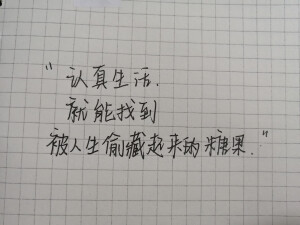 “认真生活.
就能找到
被人生偷藏起来的糖果.”